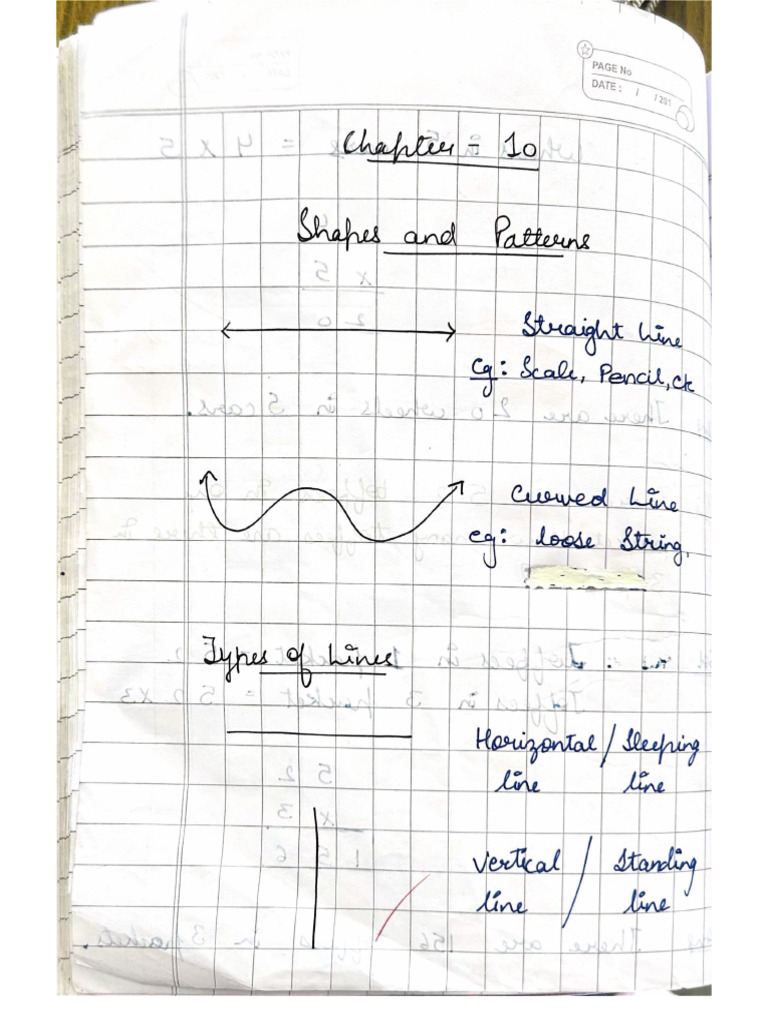 PAGE No
DATE : / /201
Chapter - 10
Shapes and Patterns
Straight Line
eg: Scale, Pencil, etc
Curved Line
eg: loose String.
Types of Lines
Horizontal / Sleeping
line line
Vertical / Standing
line line